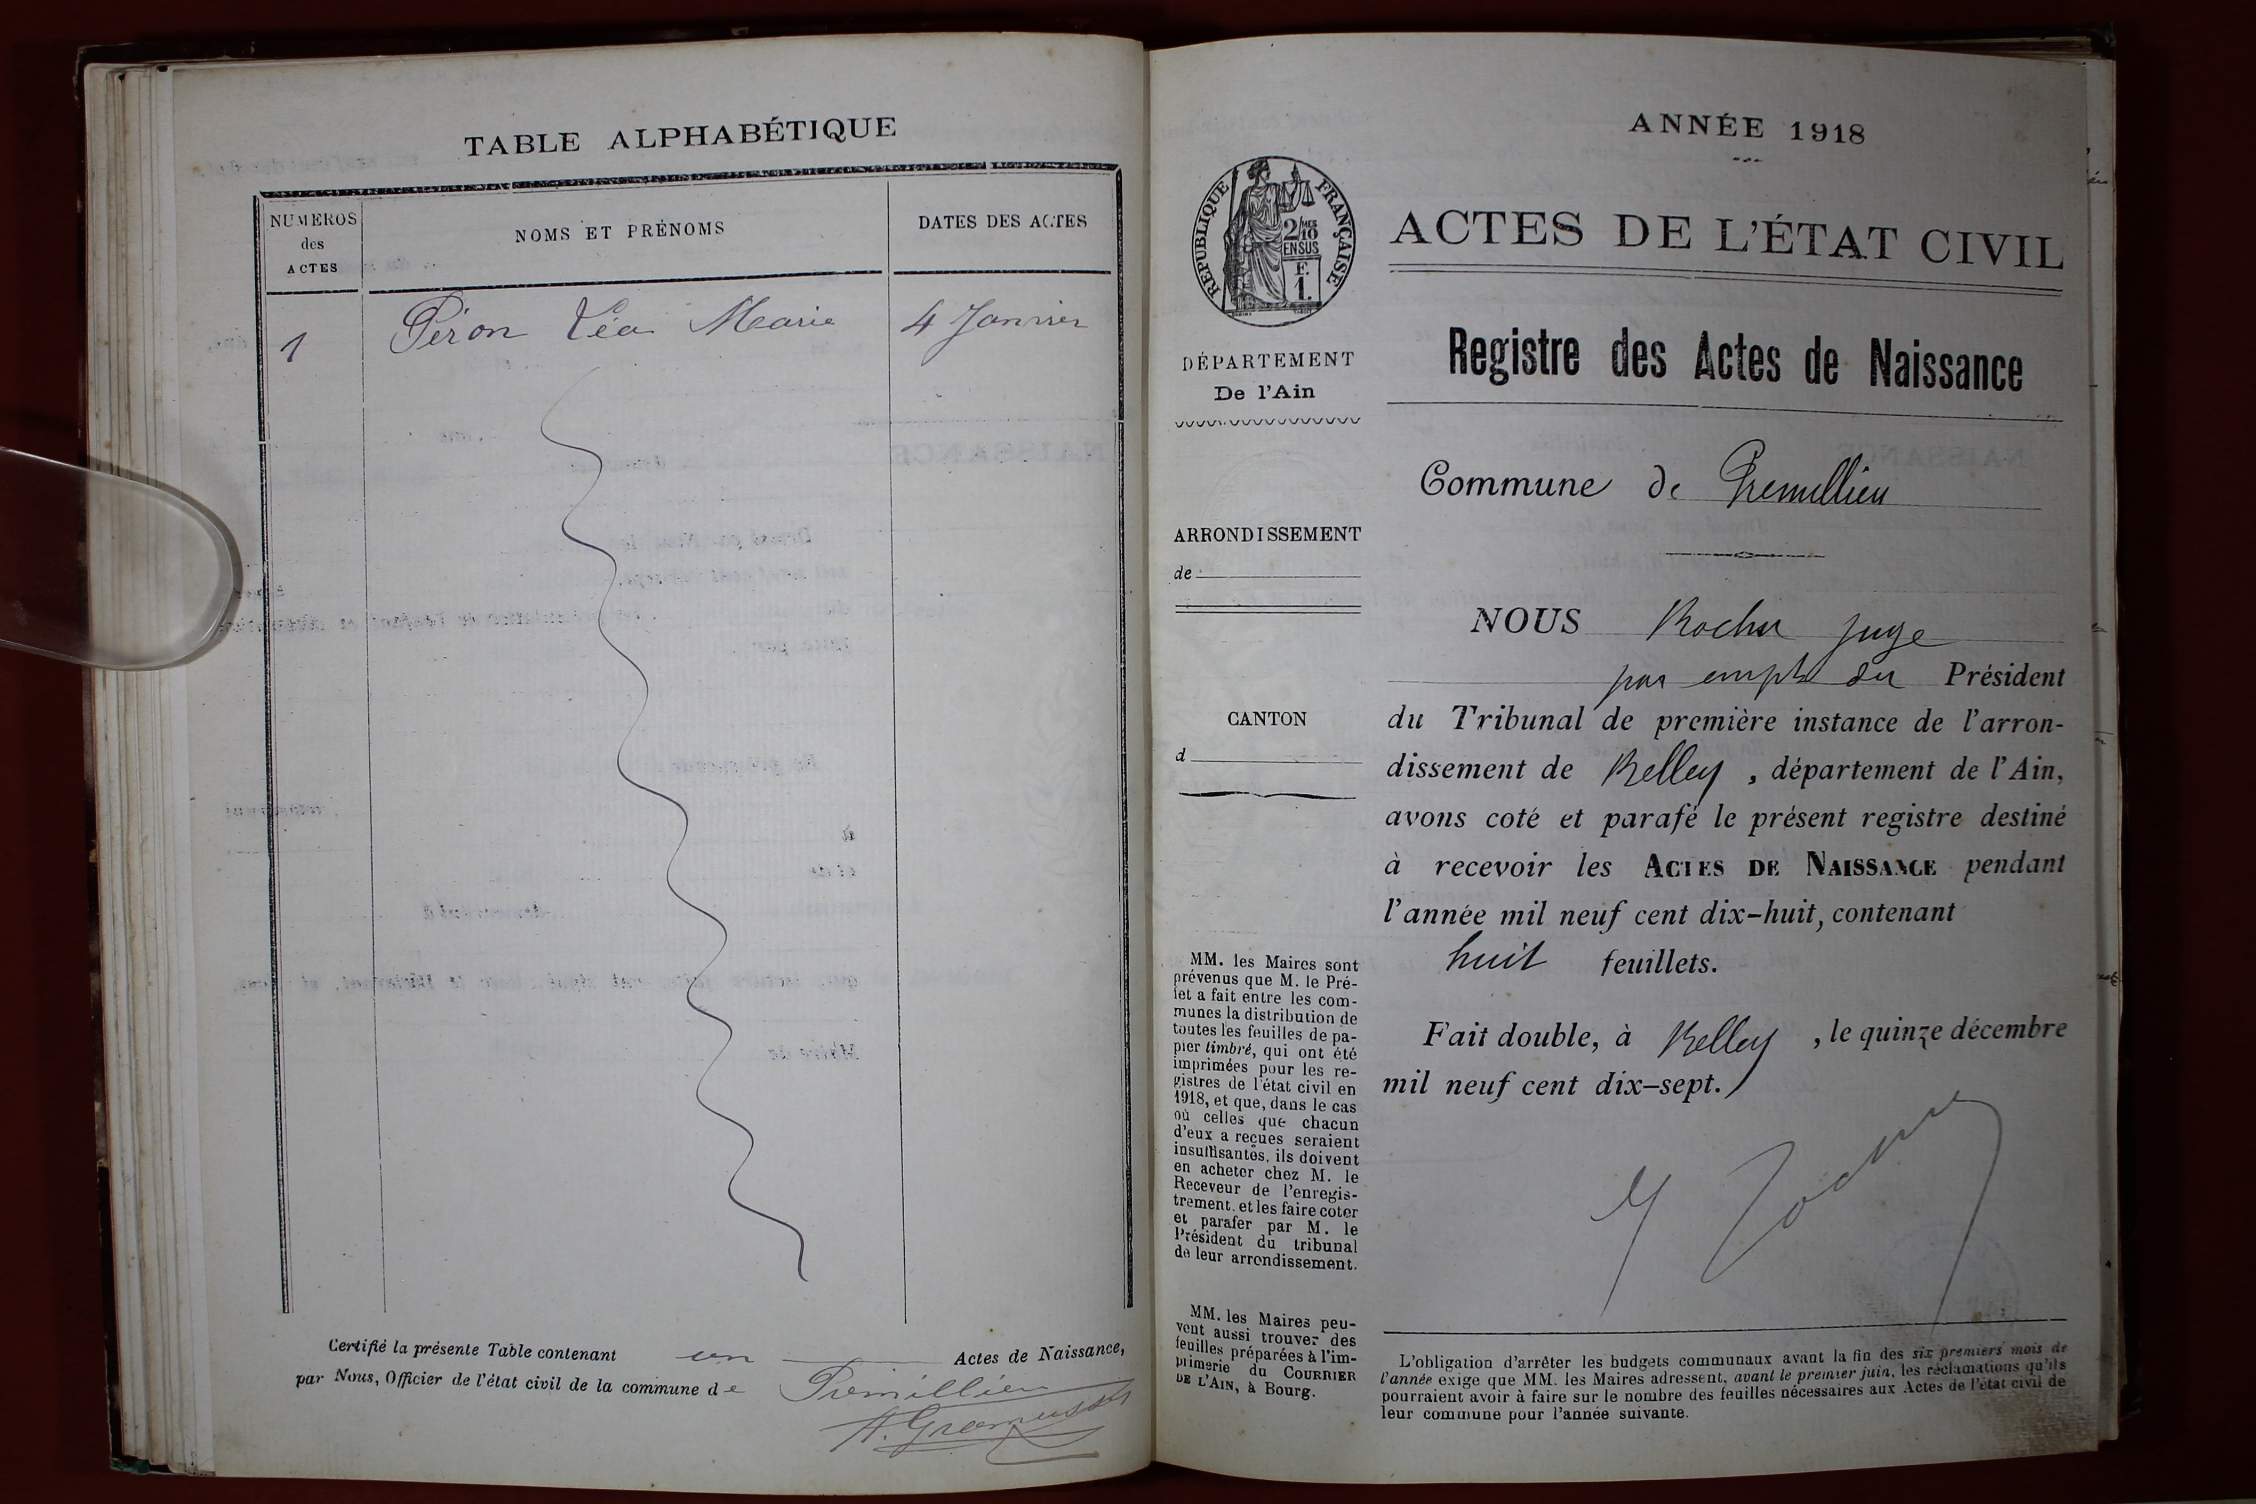 TABLE ALPHABÉTIQUE
NUMEROS
des
ACTES
NOMS ET PRÉNOMS
DATES DES ACTES
1
Péron Léa Marie
4 Janvier
Certifié la présente Table contenant un Actes de Naissance,
par Nous, Officier de l'état civil de la commune de Premillieu
ANNÉE 1918
RÉPUBLIQUE FRANÇAISE
2/10
EN SUS
F.
1.
DÉPARTEMENT
De l'Ain
ARRONDISSEMENT
de
CANTON
d
MM. les Maires sont
prévenus que M. le Pré-
fet a fait entre les com-
munes la distribution de
toutes les feuilles de pa-
pier timbré, qui ont été
imprimées pour les re-
gistres de l'état civil en
1918, et que, dans le cas
où celles que chacun
d'eux a reçues seraient
insuffisantes, ils doivent
en acheter chez M. le
Receveur de l'enregis-
trement, et les faire coter
et parafer par M. le
Président du tribunal
de leur arrondissement.
MM. les Maires peu-
vent aussi trouver des
feuilles préparées à l'im-
primerie du COURRIER
DE L'AIN, à Bourg.
ACTES DE L'ÉTAT CIVIL
Registre des Actes de Naissance
Commune de Premillieu
NOUS Rocher juge
par empt du Président
du Tribunal de première instance de l'arron-
dissement de Belley, département de l'Ain,
avons coté et parafé le présent registre destiné
à recevoir les ACTES DE NAISSANCE pendant
l'année mil neuf cent dix-huit, contenant
huit feuillets.
Fait double, à Belley, le quinze décembre
mil neuf cent dix-sept.
L'obligation d'arrêter les budgets communaux avant la fin des six premiers mois de
l'année exige que MM. les Maires adressent, avant le premier juin, les réclamations qu'ils
pourraient avoir à faire sur le nombre des feuilles nécessaires aux Actes de l'état civil de
leur commune pour l'année suivante.